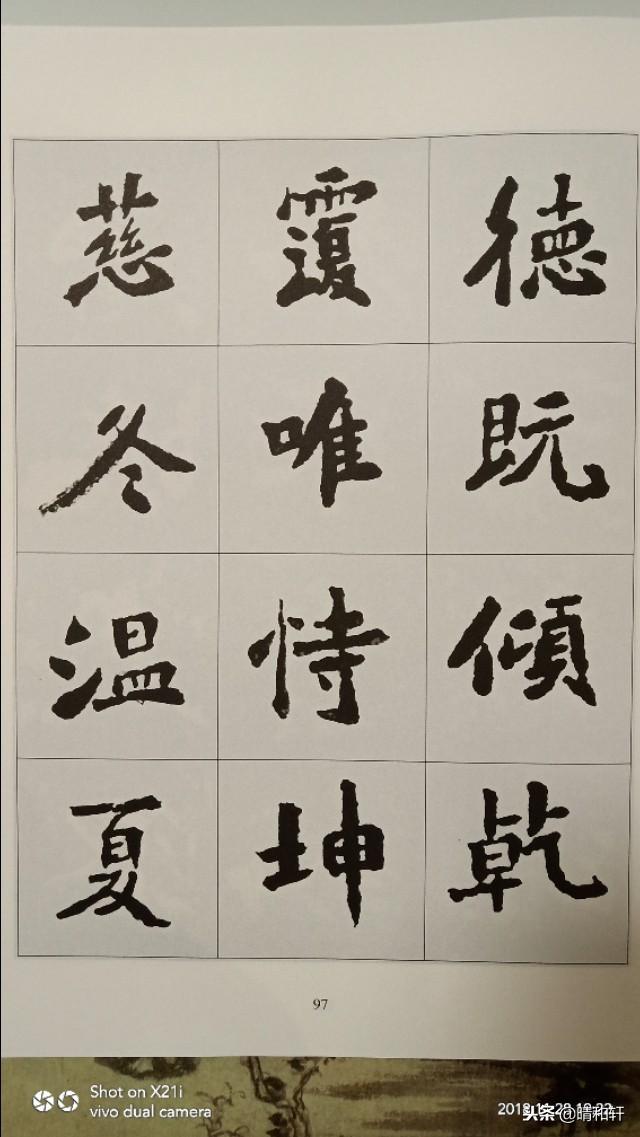 德既傾乾
覆唯恃坤
慈冬温夏
97
Shot on X21i
vivo dual camera
头条 @晴和轩